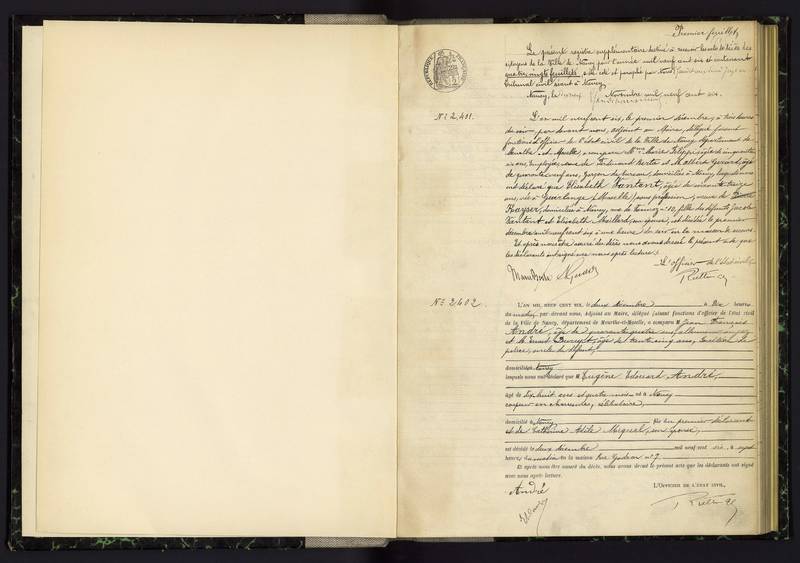 Premier feuillet
Le présent registre supplémentaire destiné à recevoir les actes de décès des
citoyens de la Ville de Nancy pour l'année mil neuf cent six et contenant
quatre vingts feuillets, a été coté et paraphé par Nous
tribunal civil séant à Nancy.
Nancy, le Novembre mil neuf cent six.
RÉPUBLIQUE FRANÇAISE
N° 2,401.
L'an mil neuf cent six, le premier décembre, à trois heures
du soir, par devant nous, adjoint au Maire, délégué faisant
fonctions d'officier de l'état civil de la Ville de Nancy, département de
Meurthe-et-Moselle, a comparu Mme Marie Filippi, âgée de cinquante
six ans, employée, veuve de Ferdinand Berta et M. Albert Gérard, âgé
de quarante neuf ans, garçon de bureau, domiciliés à Nancy, lesquels nous
ont déclaré que Elisabeth Vantent, âgée de soixante treize
ans, née à (Moselle), sans profession, veuve de
Kayser, domiciliée à Nancy, rue de n° 10, fille des défunts Jacob
Vantent et Elisabeth Maillard, son épouse, est décédée le premier
décembre mil neuf cent six à une heure du soir en la maison
Et après nous être assuré du décès, nous avons dressé le présent acte que
les déclarants ont signé avec nous après lecture.
L'Officier de l'état civil,
N° 2,402.
L'AN MIL NEUF CENT SIX, le deux décembre à dix heures
du matin, par devant nous, Adjoint au Maire, délégué faisant fonctions d'officier de l'état civil
de la Ville de Nancy, département de Meurthe-et-Moselle, a comparu M. Jean François
André, âgé de quarante quatre ans,
et M. Ernest âgé de trente cinq ans,
police, oncle du défunt,
domiciliés à Nancy
lesquels nous ont déclaré que M. Eugène Edouard André,
âgé de dix-huit ans et quatre mois né à Nancy
coupeur en chaussures, célibataire,
domicilié à Nancy fils du premier déclarant
et de Catherine Adèle Mugnel, son épouse,
est décédé le deux décembre mil neuf cent six, à sept
heures du matin en la maison rue n° 7.
Et après nous être assuré du décès, nous avons dressé le présent acte que les déclarants ont signé
avec nous après lecture.
L'OFFICIER DE L'ÉTAT CIVIL,
André